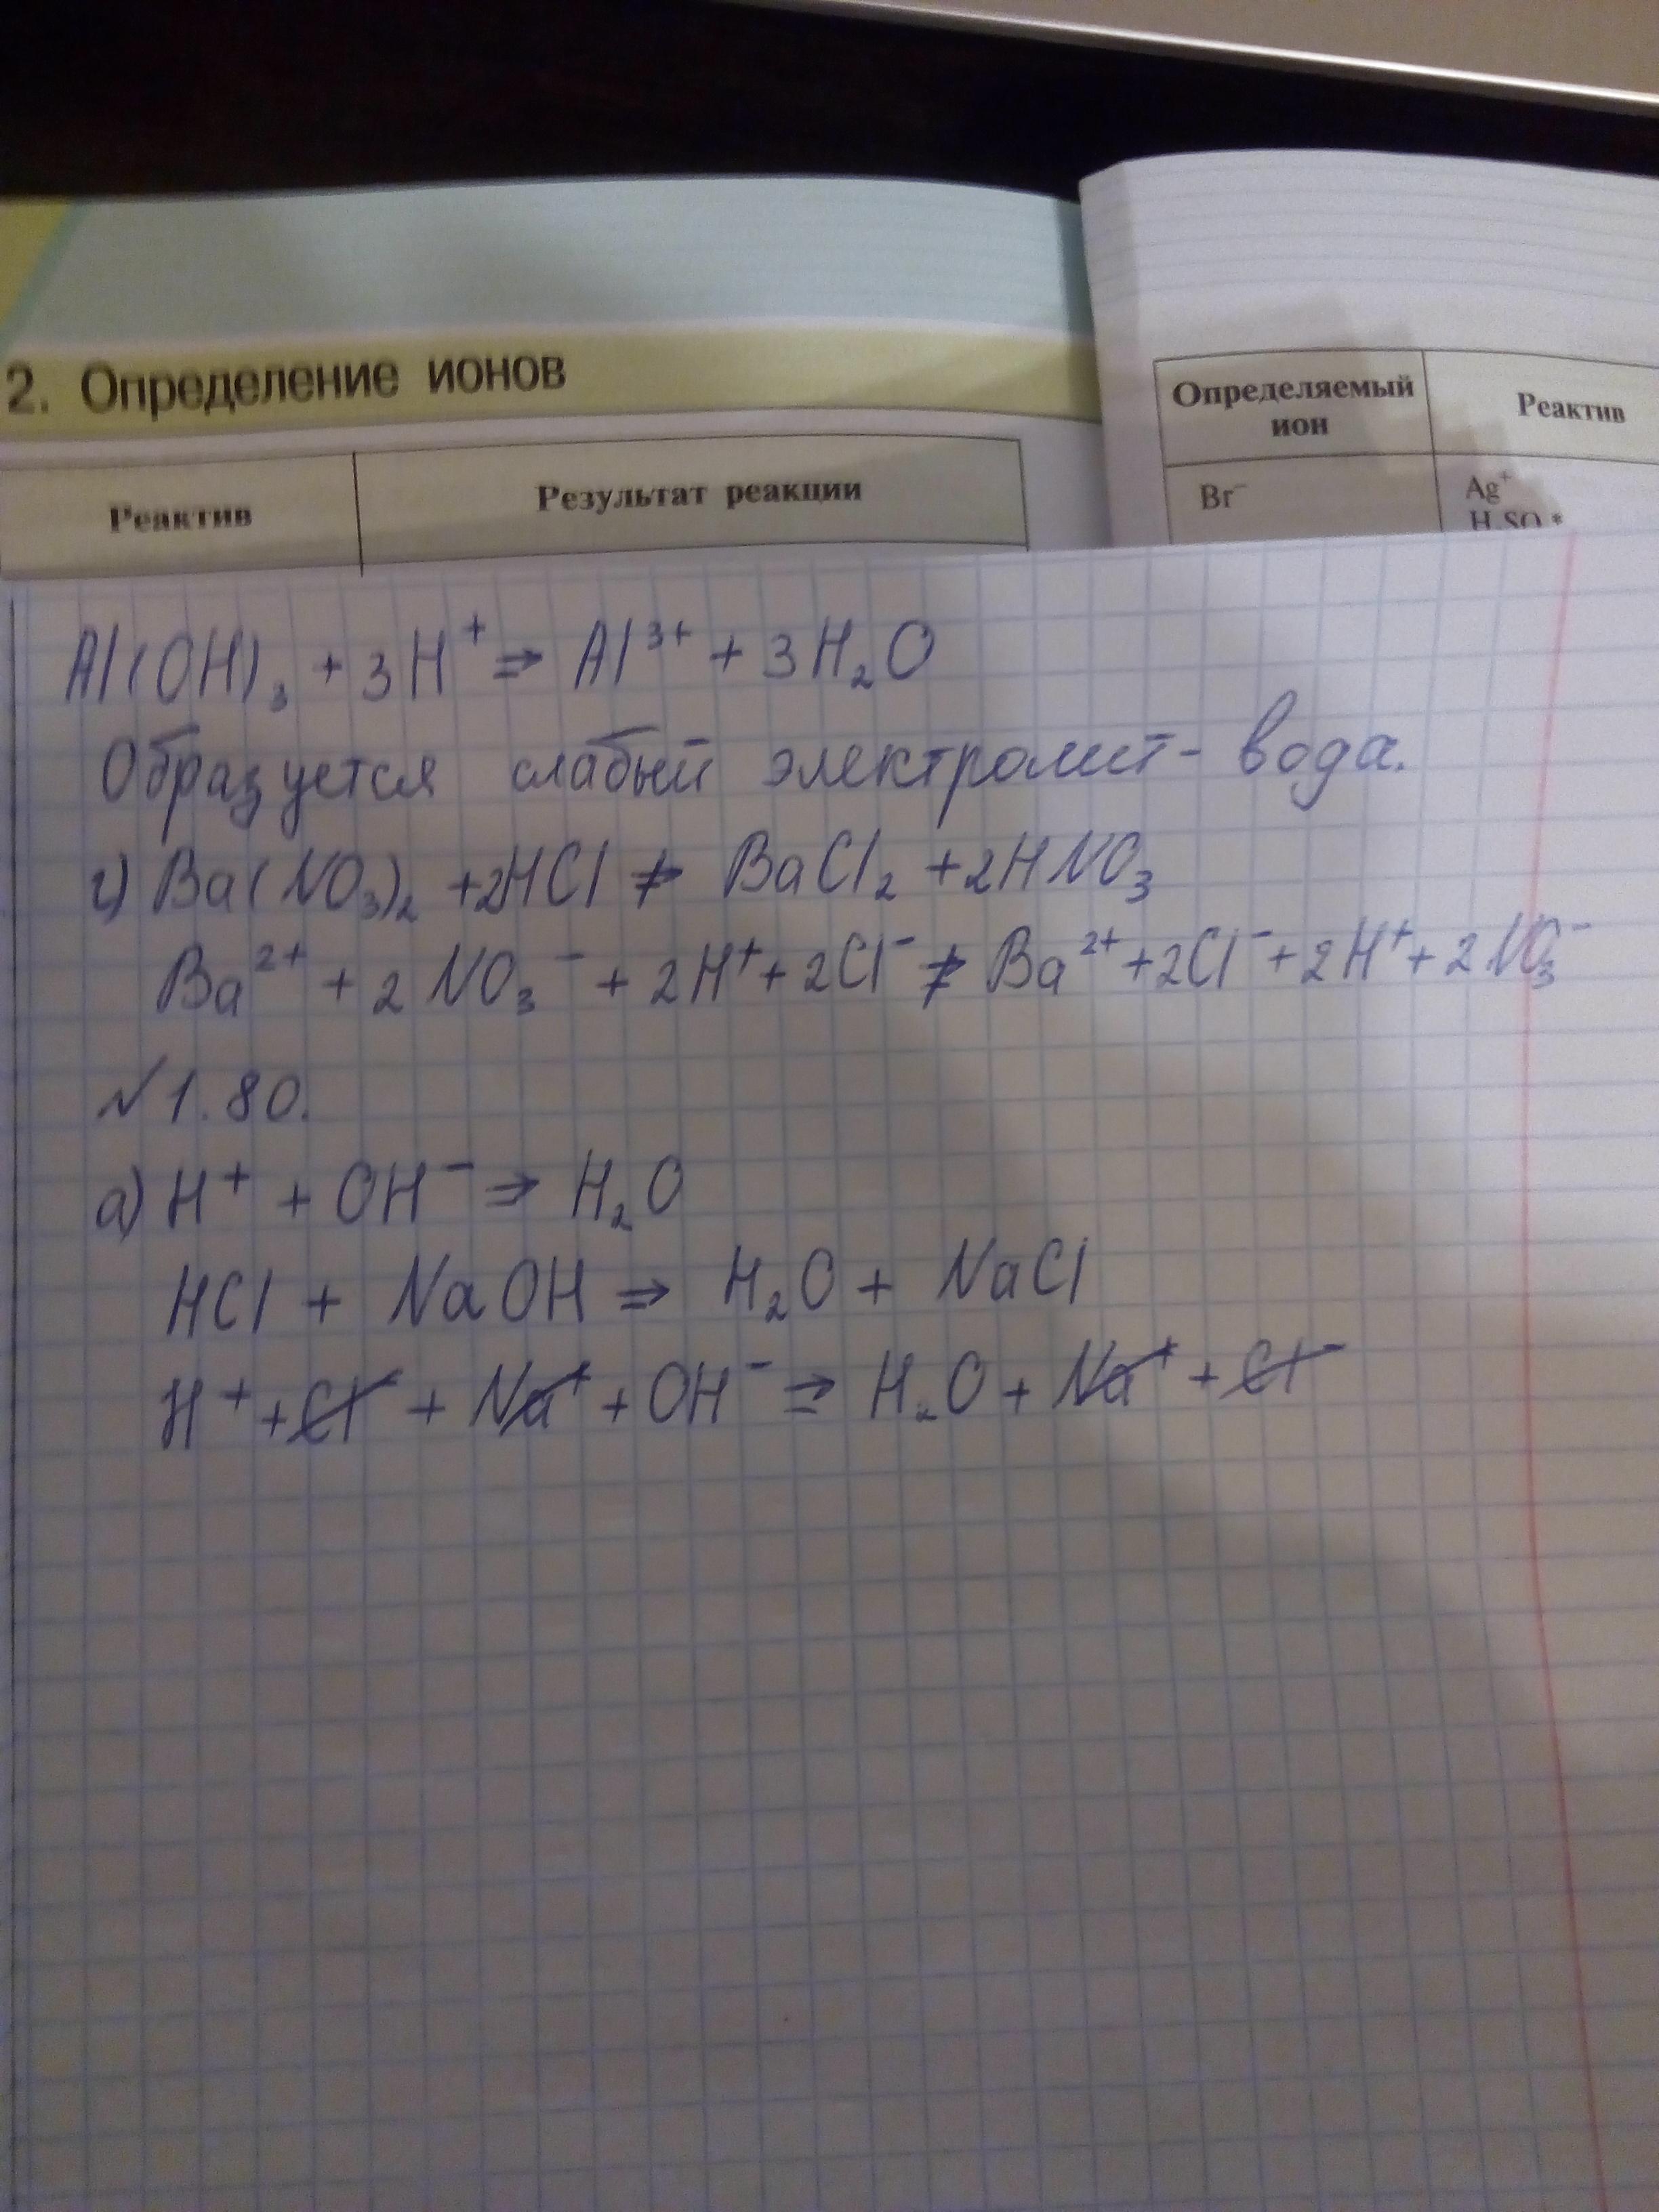 2. Определение ионов
Реактив
Результат реакции
Определяемый
ион
Реактив
Br⁻
Ag⁺
H₂SO₄*
Al(OH)₃ + 3H⁺ ⇒ Al³⁺ + 3H₂O
Образуется слабый электролит - вода.
г) Ba(NO₃)₂ + 2HCl ⇏ BaCl₂ + 2HNO₃
Ba²⁺ + 2NO₃⁻ + 2H⁺ + 2Cl⁻ ⇏ Ba²⁺ + 2Cl⁻ + 2H⁺ + 2NO₃⁻
№1.80.
а) H⁺ + OH⁻ ⇒ H₂O
HCl + NaOH ⇒ H₂O + NaCl
H⁺ + Cl⁻ + Na⁺ + OH⁻ ⇒ H₂O + Na⁺ + Cl⁻